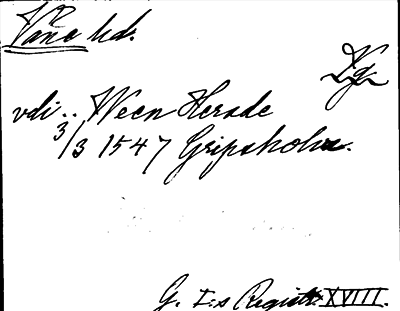 Våne hd.
Vg.
vdi .. Ween Herade
3/3 1547 Gripsholm.
G. I:s Registr. XVIII.